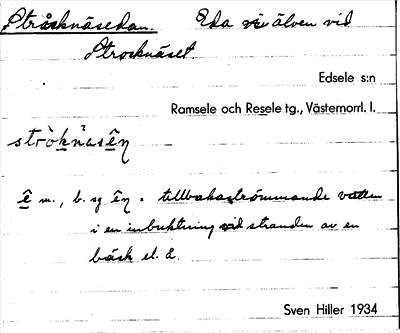 Stråcknäsedan. Eda i älven vid
Strocknäset.
Edsele s:n
Ramsele och Resele tg., Västernorrl. l.
ê m., b. sg ên = tillbakaströmmande vatten
i en inbuktning vid stranden av en
bäck el. å.
Sven Hiller 1934